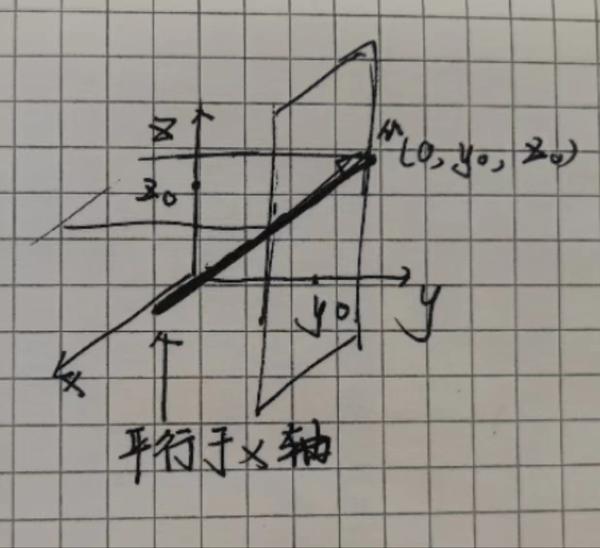 z
M(0, y₀, z₀)
z₀
y₀
y
x
平行于x轴